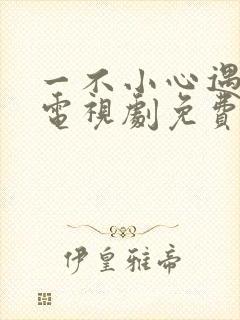 一不小心遇
電視劇免費
伊皇雅帝